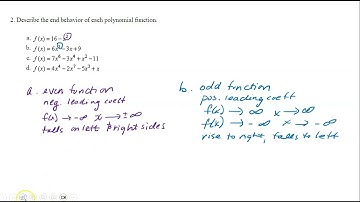 2. Describe the end behavior of each polynomial function.
a. f(x) = 16 −
b. f(x) = 6x − 3x + 9
c. f(x) = 7x⁶ − 3x⁴ + x² − 11
d. f(x) = 4x⁴ − 2x⁷ − 5x³ + x
a. even function
neg. leading coeff
f(x) → -∞ x → ±∞
falls on left & right sides
b. odd function
pos. leading coeff
f(x) → ∞ x → ∞
f(x) → -∞ x → -∞
rise to right, falls to left